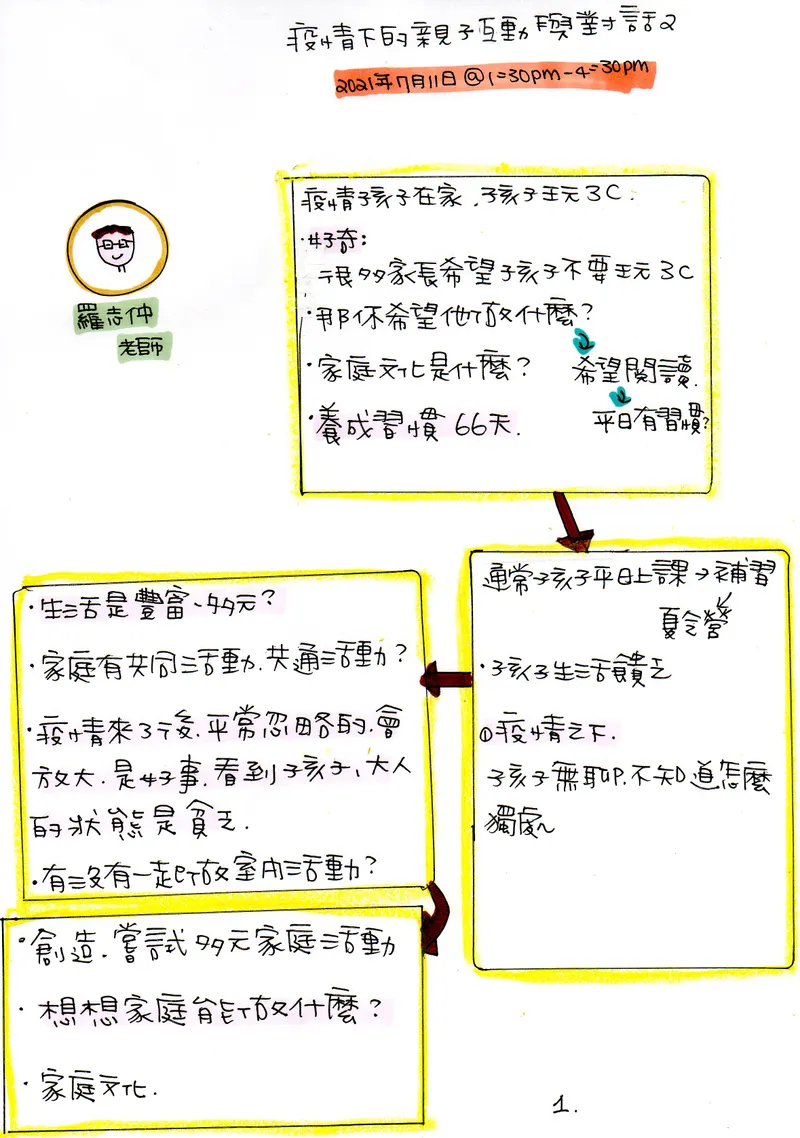 疫情下的親子互動與對話2
2021年7月11日@1:30pm-4:30pm
羅志仲
老師
疫情孩子在家,孩子玩3C.
·好奇:
很多家長希望孩子不要玩3C
·那你希望他做什麼?
·家庭文化是什麼?
希望閱讀.
·養成習慣 66天.
平日有習慣?
通常孩子平日上課→補習
夏令營
·孩子生活饋乏
①疫情之下.
孩子無聊,不知道怎麼
獨處
·生活是豐富、多元?
·家庭有共同活動.共通活動?
·疫情來了後,平常忽略的,會
放大.是好事.看到孩子、大人
的狀態是貧乏.
·有沒有一起做室內活動?
·創造.嘗試多元家庭活動
·想想家庭能做什麼?
·家庭文化.
1.